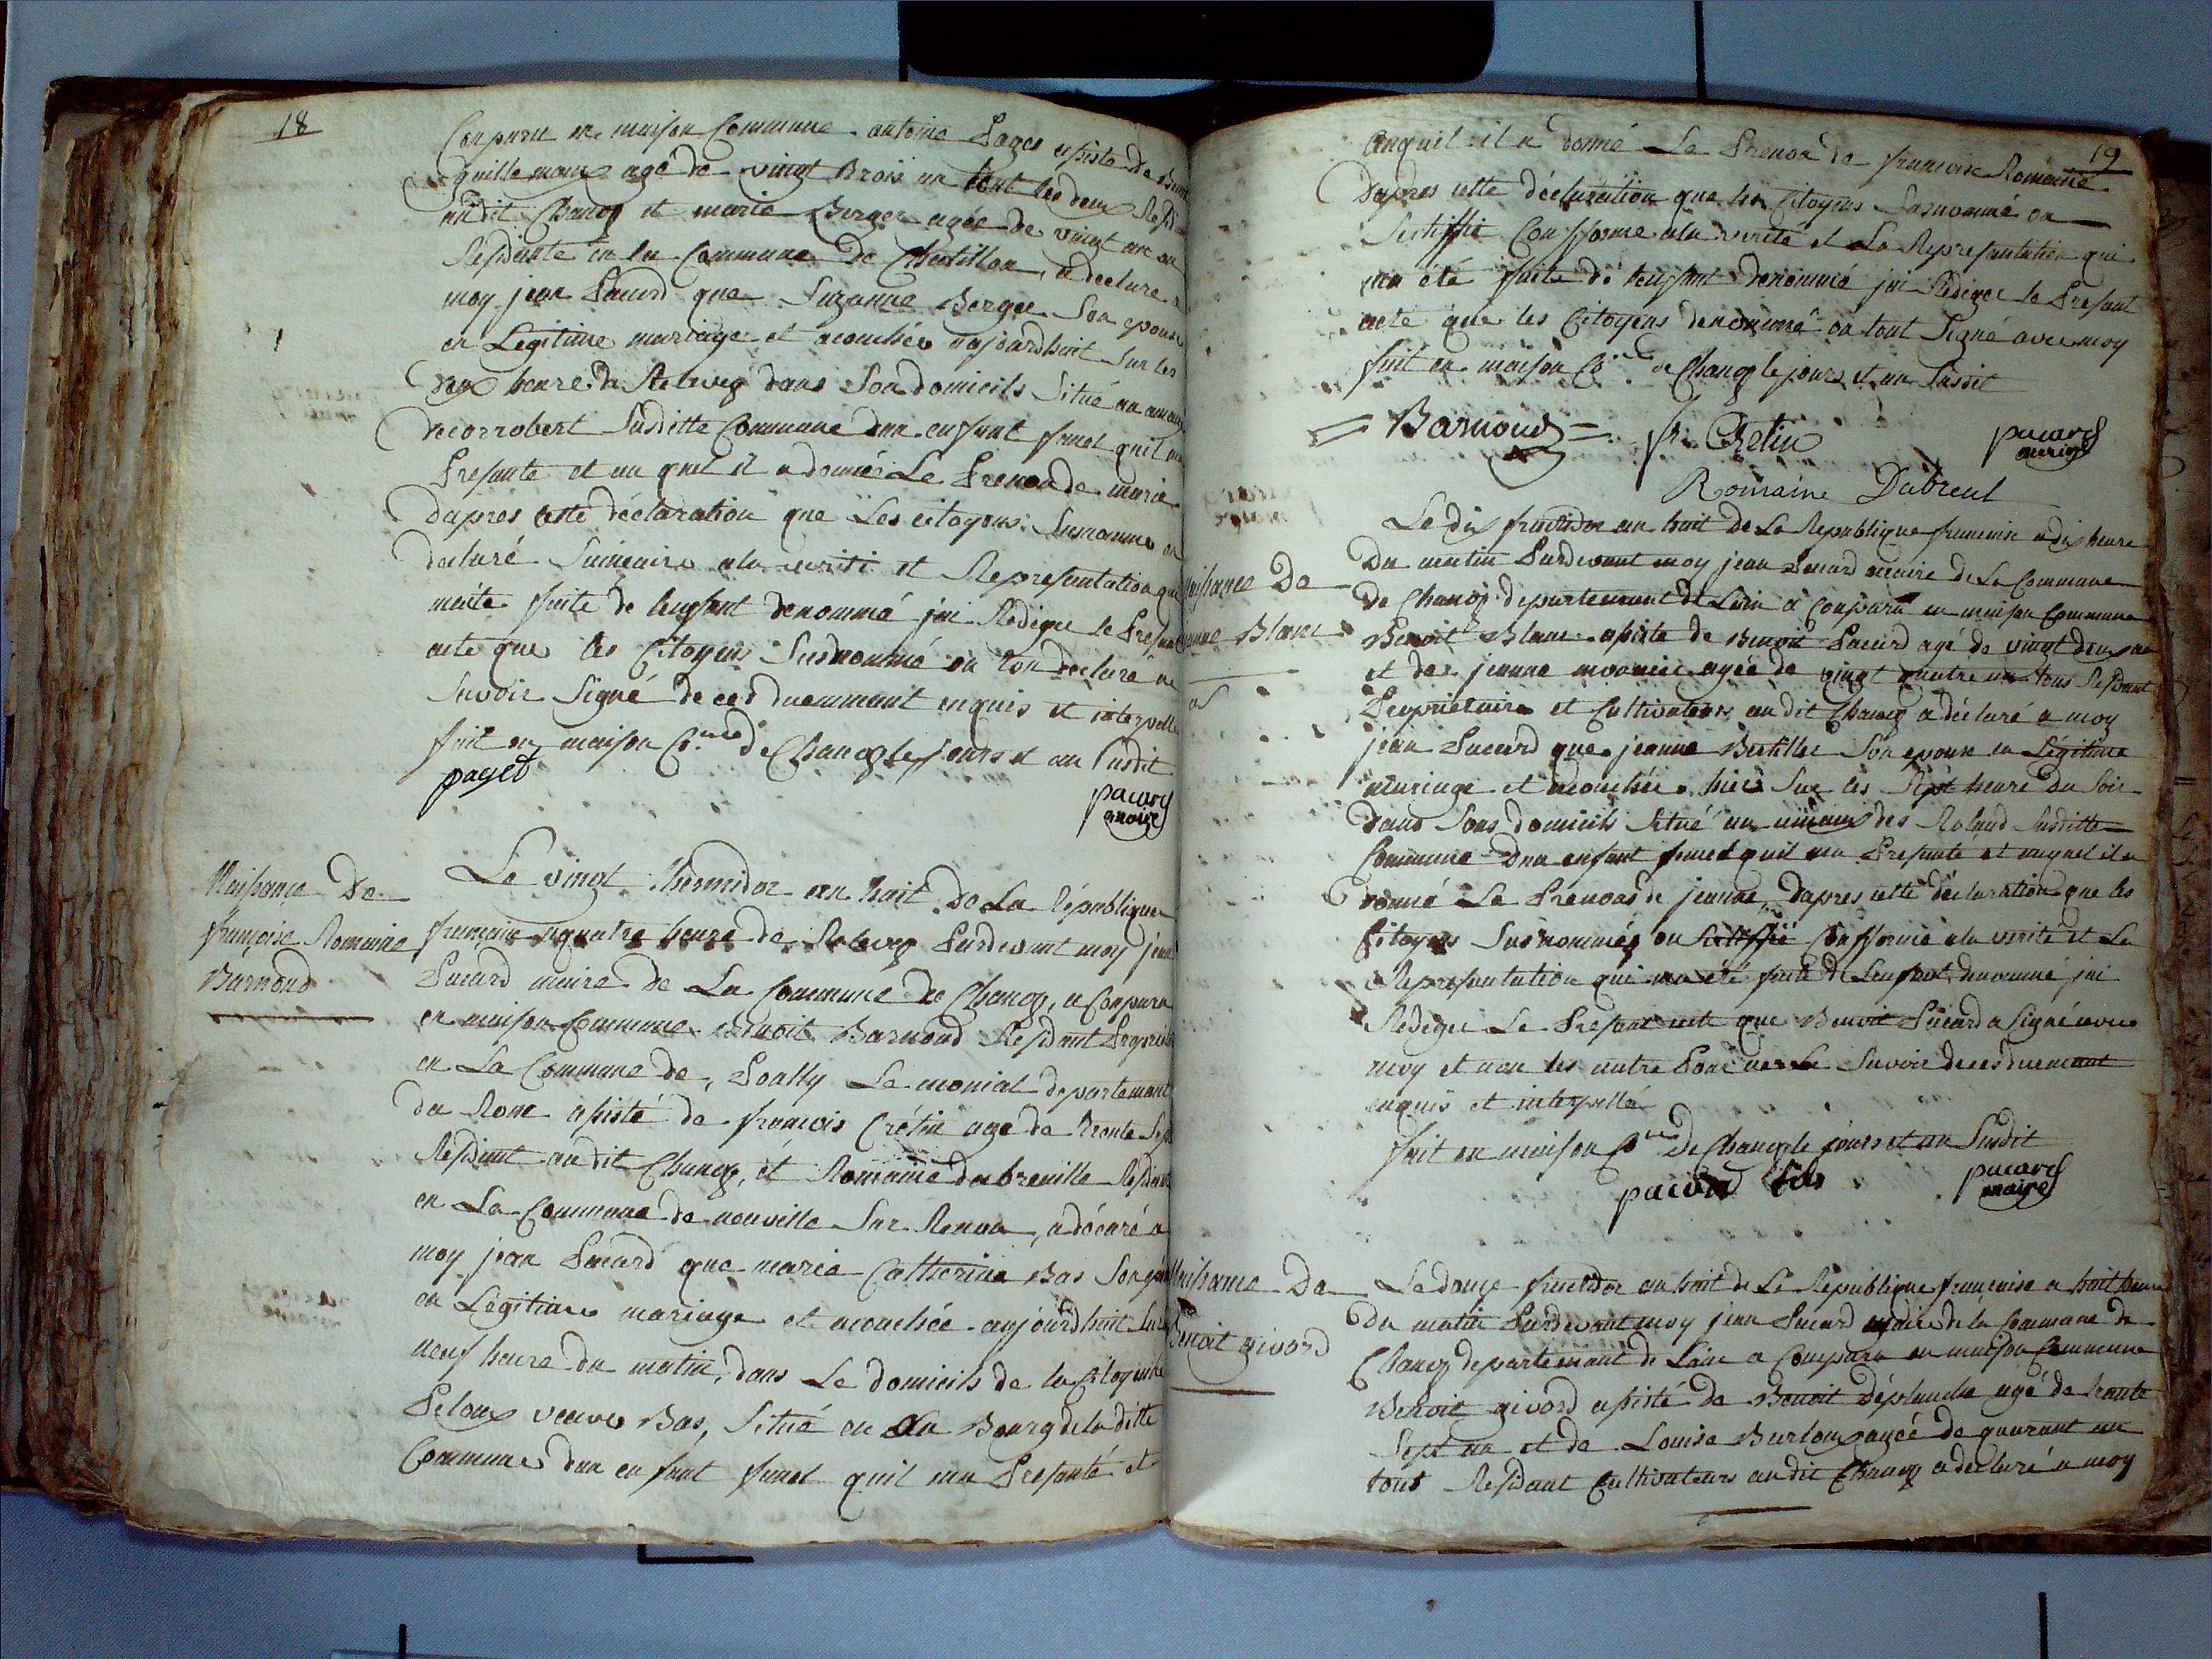 18
Conparu en maison Commune antoine Pages assisté de Benoit
Guillemaux agé de vingt trois an tout les deux Residant
audit Chanoz et marie Berger agée de vingt un an
Residante en la Commune de Chatillon, a declaré a
moy jean Pacard que Suzanne Berger Son epouse
en Legitime mariage et acouchée aujourdhuit Sur les
deux heure de Releveg dans Son domicils Situé au amaux
de corrobert Susditte Commune dun enfant femel quil ma
Presanté et au quel il a donné Le Prenon de marie
Dapres cette déclaration que Les citoyens Susnommé on
declaré Suincaire a la verité et Representation qui
maité faite de lenfant denommé jai Rédigée le Presant
acte que les Citoyens Susnommé on ton declaré ne
Savoir Signé de ces duemmant enquis et interpellé
fait en maison Co.ne de Chanoz le jours et an Susdit
paget
pacard
maire
Naissance De
françoise Romaine
Barnoud
Le vingt thermidor an huit De La République
francaise a quatre heure de Releveg Pardevant moy jean
Pacard maire de La Commune de Chanoz, a Conparu
en maison Commune Benoit Barnoud Residant Propriétaire
en La Commune de, Poally Le monial departemant
du Rone assisté de francois Crétin agé de trente Sept
Residant audit Chanoz, et Romaine dubreuille Residant
en La Commune de neuville Sur Renon, a décaré a
moy jean Pacard que marie Catherine Bas Son epouse
en Legitime mariage et acouchée aujourdhuit Sur
neuf heure du matin, dans Le domicils de la Citoyenne
Peloux veuve Bas, Situé en du Bourg de la ditte
Commune dun enfant femel quil ma Presanté et
19
auquil il a donné Le Prenon de francoise Romaine
Dapres cette déclaration que les Citoyens Susnommé on
Sertiffié Conforme a la verité et La Representation qui
ma été faite de lenfant denommé jai Rédigée le Presant
acte que les Citoyens denommé on tout Signé avec moy
fait en maison Co.ne de Chanoz le jours et an Susdit
Barnoud
fr. Cretin
pacard
maire
Romaine Dubreul
Naissance De
jeanne Blanc
Le dix fructidor an huit de La Republique francaise a dix heure
Du matin Pardevant moy jean Pacard maire de La Commune
de Chanoz departemant de Lain a Conparu en maison Commune
Benoit Blanc assisté de Benoit Pacard agé de vingt deux an
et de jeanne mounier agée de vingt quatre an tous Residant
Propriétaire et Cultivateurs audit Chanoz a déclaré a moy
jean Pacard que jeanne Bertiller Son epouse en Légitime
mariage et acouchée hiers Sur les Sept heure Du Soir
dans Sons domicils Situé au amaux des Roland Susditte
Commune dun enfant femel quil ma Presanté et auquel il a
donné Le Prenons de jeanne Dapres cette déclaration que les
Citoyens Susnommés on Sertiffié Conforme a la verité et La
Representation qui ma été faite de Lenfant denommé jai
Rédigée Le Presant acte que Benoit Pacard a Signé avec
moy et non les autre Pour ne Le Savoir de ces duemant
enquis et interpellé
fait en maison Co.ne De Chanoz le jours et an Susdit
pacard fils
pacard
maire
Naissance De
Benoit givord
Le douze fructidor an huit de La Republique françoise a huit heure
Du matin Pardevant moy jean Pacard maire de la Commune de
Chanoz departemant de Lain a Comparu en maison Commune
Benoit givord assisté de Benoit Déplanche agé de trante
Sept an et de Louise Burloux agée de quarant an
tout Residant Cultivateurs audit Chanoz a declaré a moy